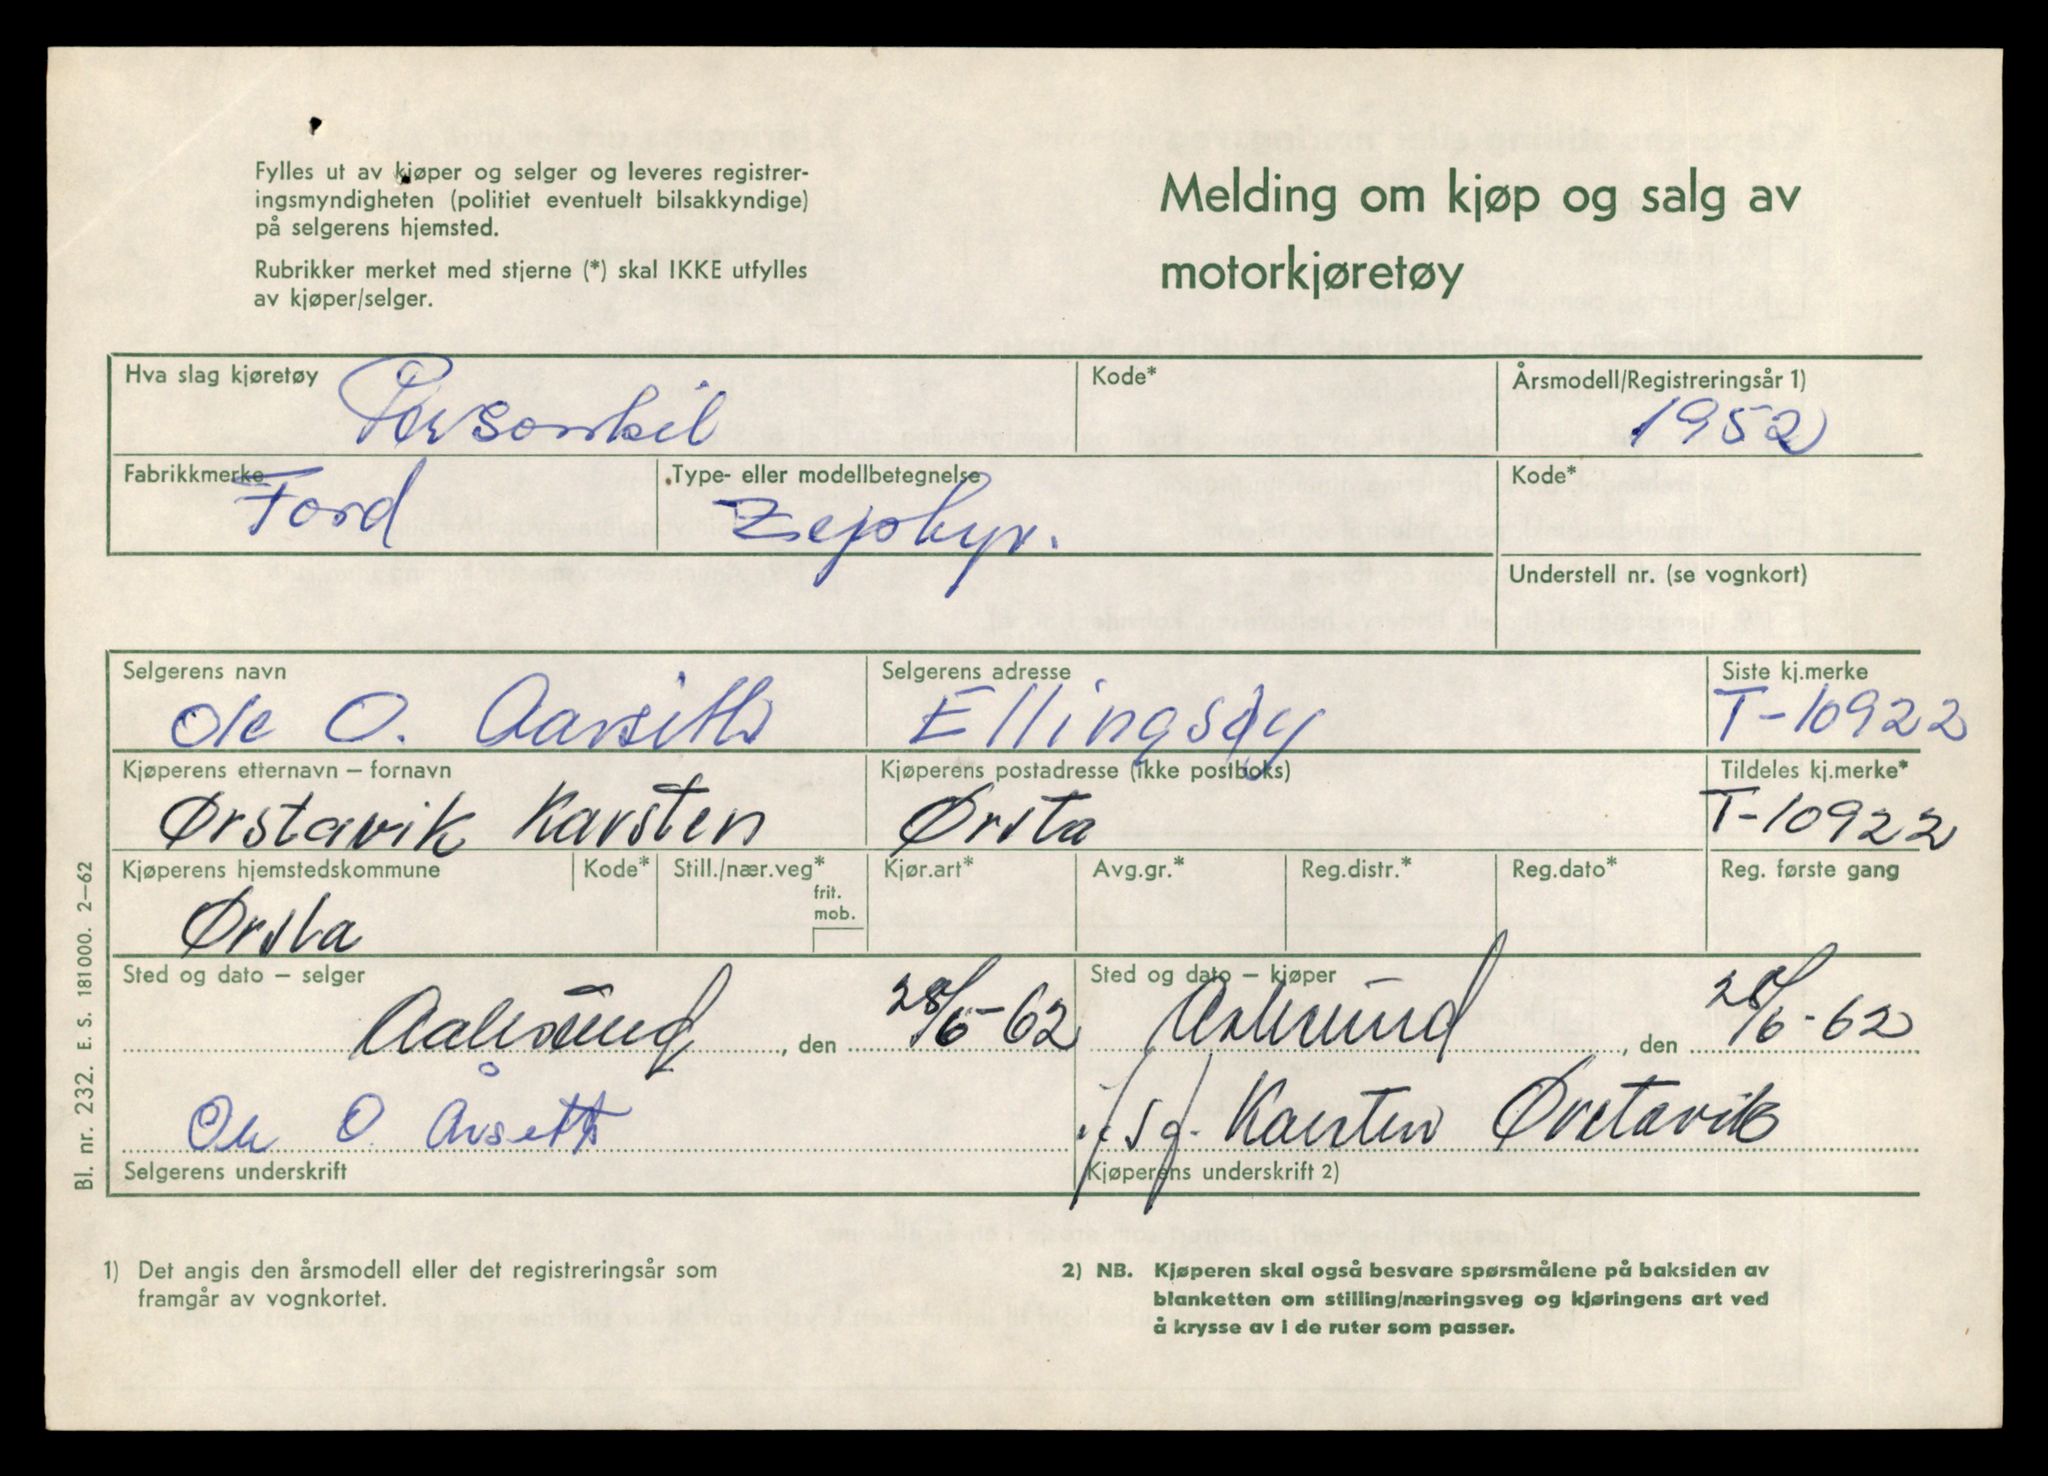 Fylles ut av kjøper og selger og leveres registrer-
ingsmyndigheten (politiet eventuelt bilsakkyndige)
på selgerens hjemsted.
Rubrikker merket med stjerne (*) skal IKKE utfylles
av kjøper/selger.
Melding om kjøp og salg av
motorkjøretøy
Hva slag kjøretøy Personbil
Kode*
Årsmodell/Registreringsår 1) 1952
Fabrikkmerke Ford
Type- eller modellbetegnelse Zephyr.
Kode*
Understell nr. (se vognkort)
Selgerens navn Ole O. Aarseth
Selgerens adresse Ellingsøy
Siste kj.merke T-10922
Kjøperens etternavn – fornavn Ørstavik Karsten
Kjøperens postadresse (ikke postboks) Ørsta
Tildeles kj.merke* T-10922
Kjøperens hjemstedskommune Ørsta
Kode*
Still./nær.veg*
frit.
mob.
Kjør.art*
Avg.gr.*
Reg.distr.*
Reg.dato*
Reg. første gang
Sted og dato – selger
Aalesund, den 28/6-62
Sted og dato – kjøper
Aalesund, den 28/6-62
Ole O. Årseth
Selgerens underskrift
Karsten Ørstavik
Kjøperens underskrift 2)
Bl. nr. 232. E. S. 181000. 2–62
1) Det angis den årsmodell eller det registreringsår som
framgår av vognkortet.
2) NB. Kjøperen skal også besvare spørsmålene på baksiden av
blanketten om stilling/næringsveg og kjøringens art ved
å krysse av i de ruter som passer.